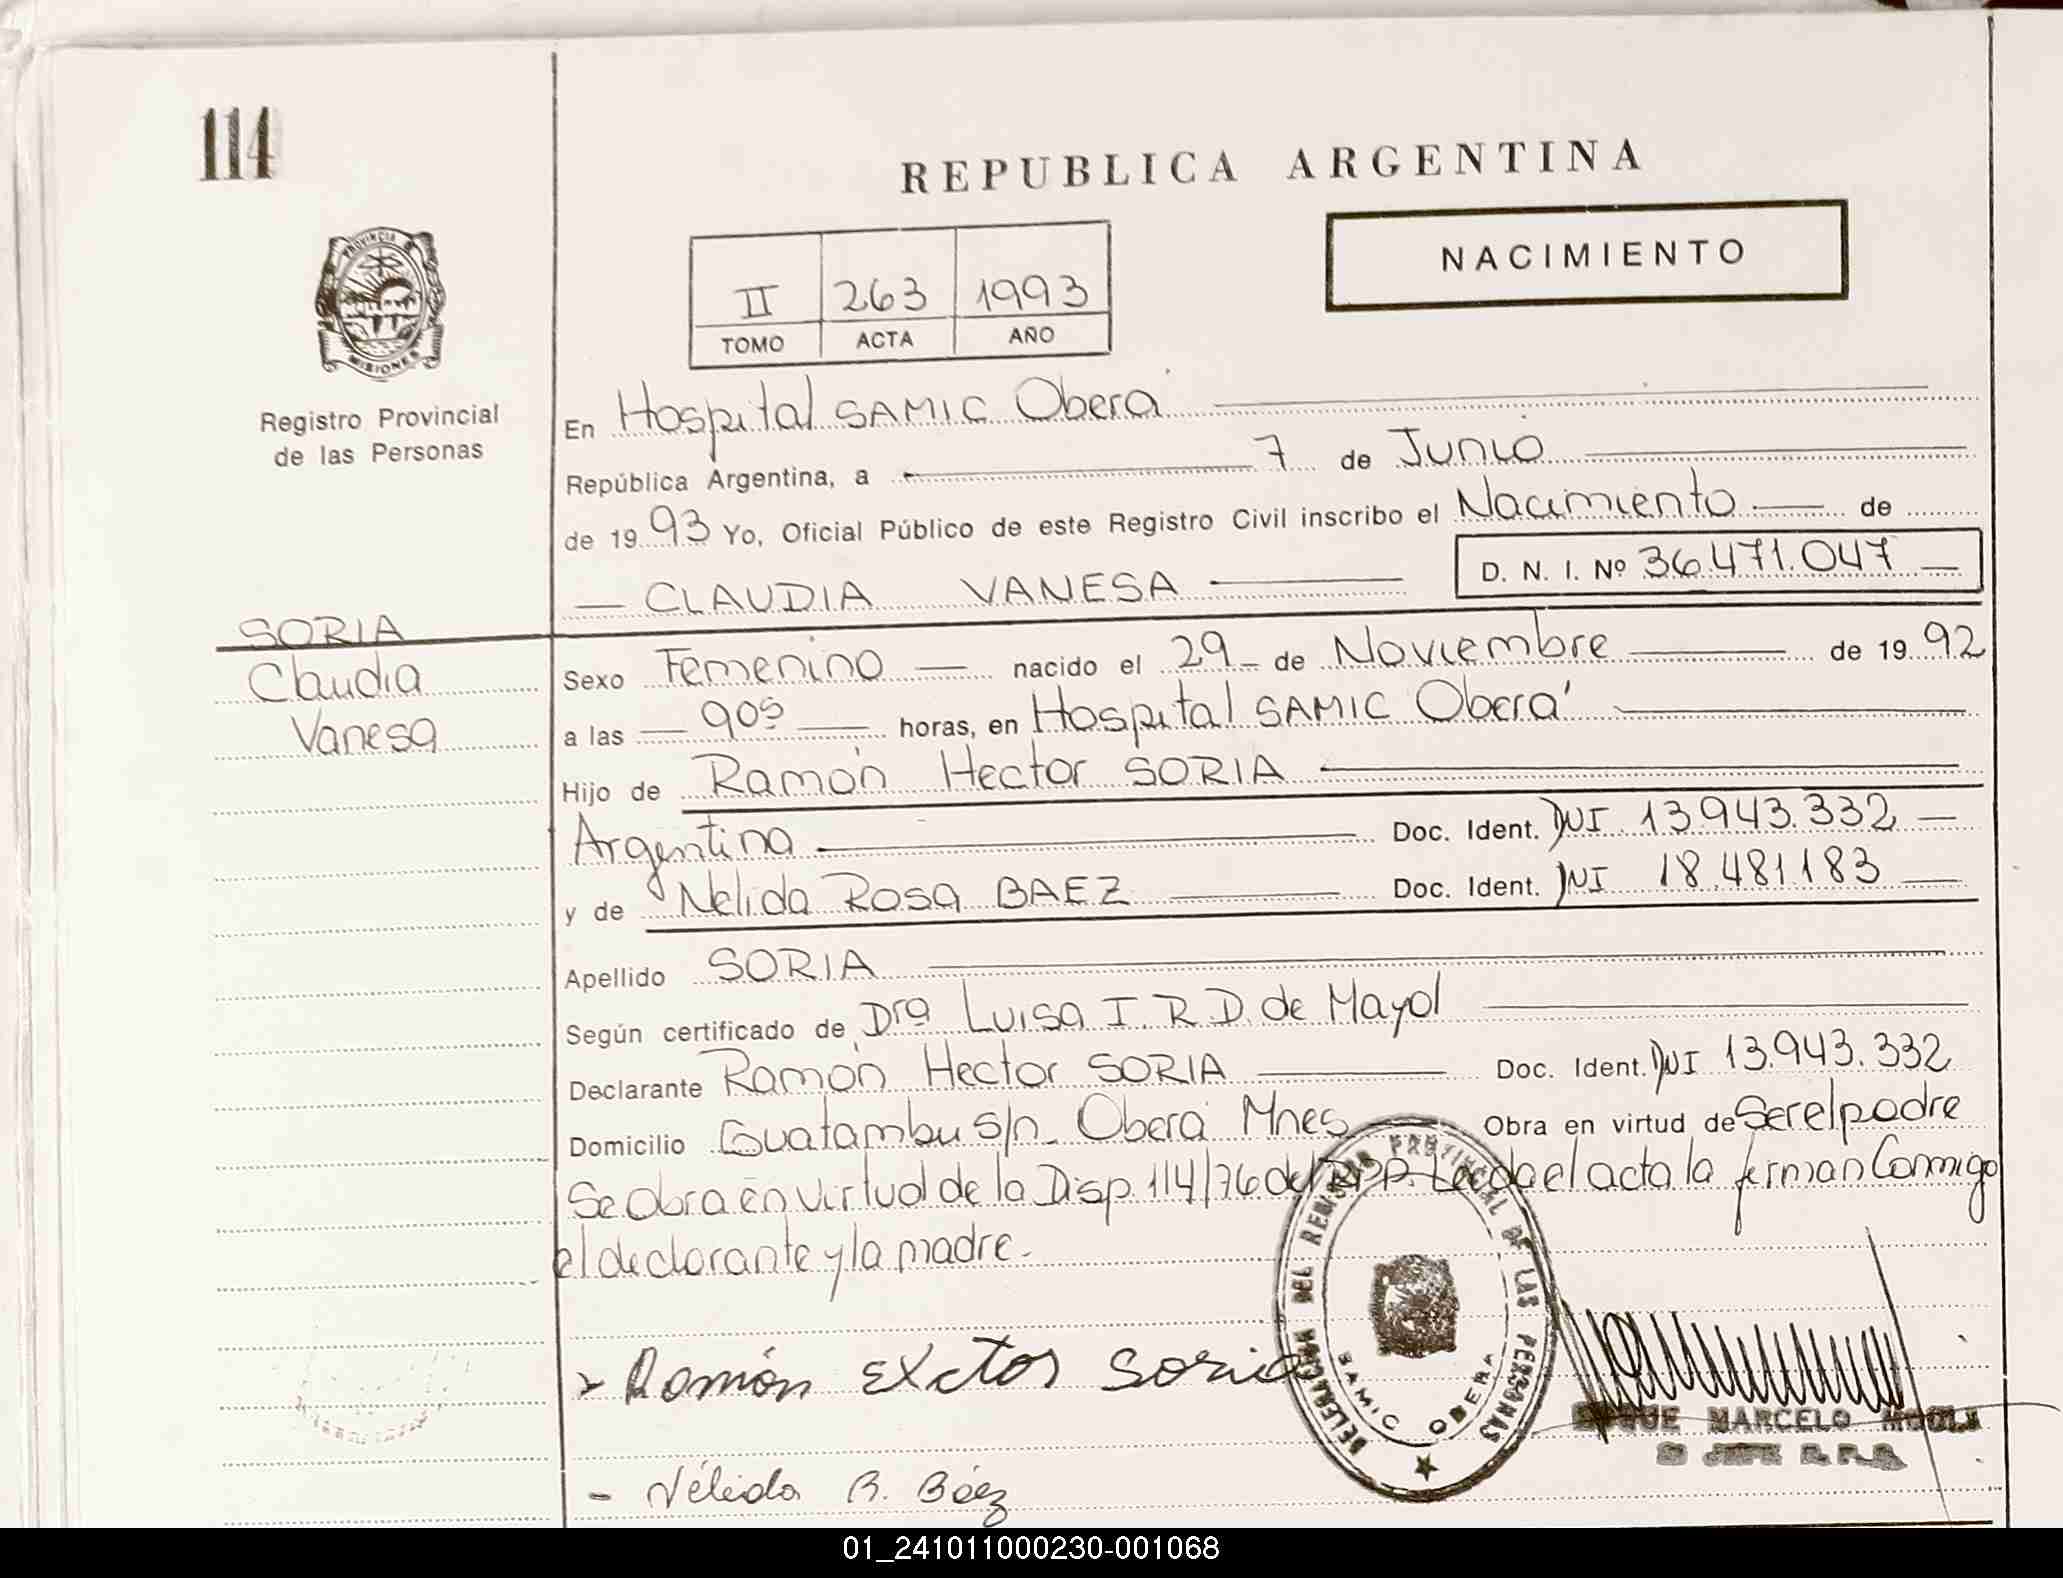 114
REPUBLICA ARGENTINA
NACIMIENTO
II 263 1993
TOMO ACTA AÑO
PROVINCIA
MISIONES
Registro Provincial
de las Personas
En Hospital SAMIC Oberá
República Argentina, a 7 de Junio
de 1993 Yo, Oficial Público de este Registro Civil inscribo el Nacimiento de
CLAUDIA VANESA D. N. I. Nº 36.471.047
SORIA
Claudia
Vanesa
Sexo Femenino nacido el 29 de Noviembre de 1992
a las 905 horas, en Hospital SAMIC Oberá
Hijo de Ramón Hector SORIA
Argentina Doc. Ident. DNI 13.943.332
y de Nelida Rosa BAEZ Doc. Ident. DNI 18.481.183
Apellido SORIA
Según certificado de Dra Luisa I. R. D. de Mayol
Declarante Ramón Hector SORIA Doc. Ident. DNI 13.943.332
Domicilio Guatambu s/n Oberá Mnes Obra en virtud de Ser el padre
Se obra en virtud de la Disp. 114/76 del el acta la firman Conmigo
el declarante y la madre.
Ramón Exctor Soria
DELEGACION DEL REGISTRO PROVINCIAL DE LAS PERSONAS
SAMIC OBERA
MARCELO
Nélida R. Báez
01_241011000230-001068